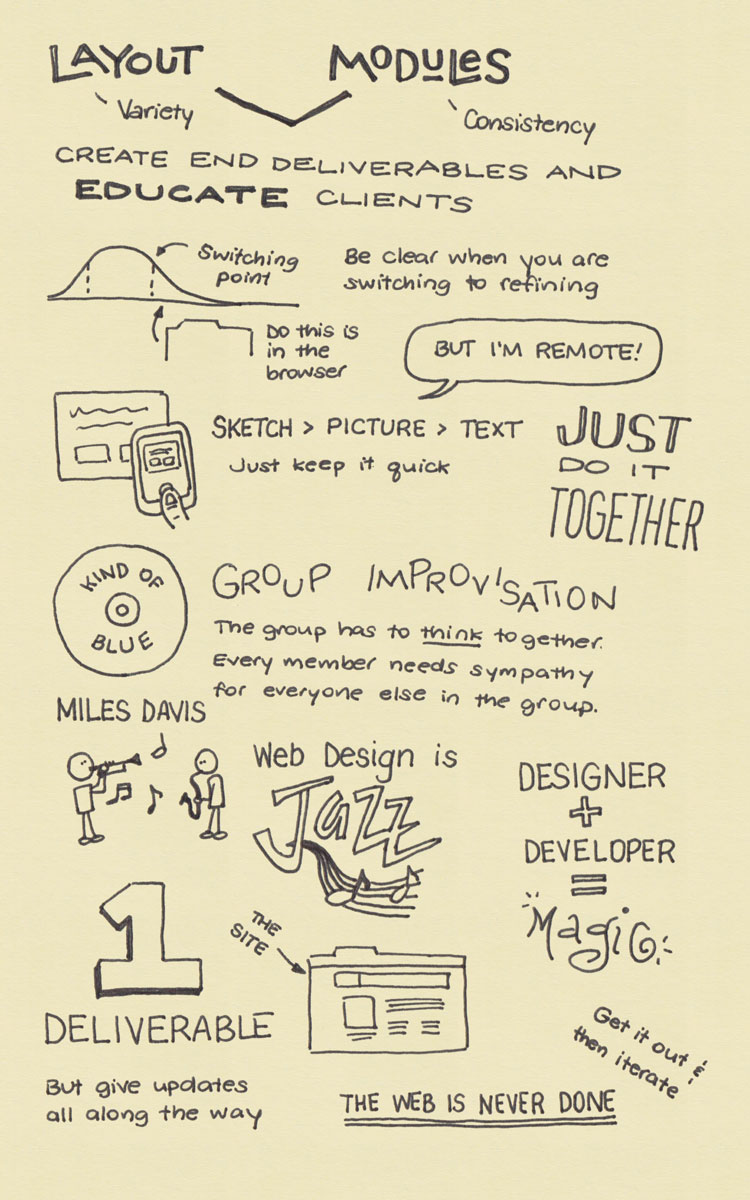 LAYOUT MODULES
Variety
Consistency
CREATE END DELIVERABLES AND
EDUCATE CLIENTS
Switching
point
Be clear when you are
switching to refining
Do this is
in the
browser
BUT I'M REMOTE!
SKETCH > PICTURE > TEXT
Just keep it quick
JUST
DO IT
TOGETHER
KIND OF
BLUE
MILES DAVIS
GROUP IMPROVISATION
The group has to think together.
Every member needs sympathy
for everyone else in the group.
Web Design is
Jazz
DESIGNER
+
DEVELOPER
=
Magic
1
DELIVERABLE
But give updates
all along the way
THE
SITE
Get it out &
then iterate
THE WEB IS NEVER DONE